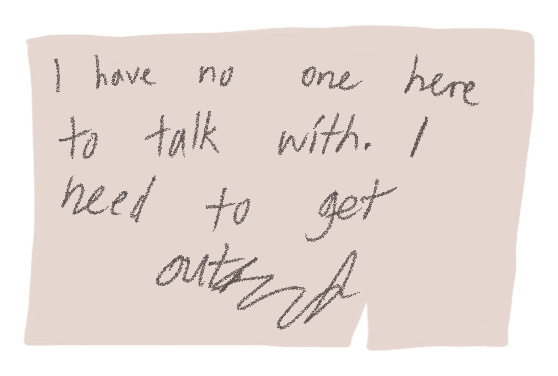 I have no one here
to talk with. I
need to get
out